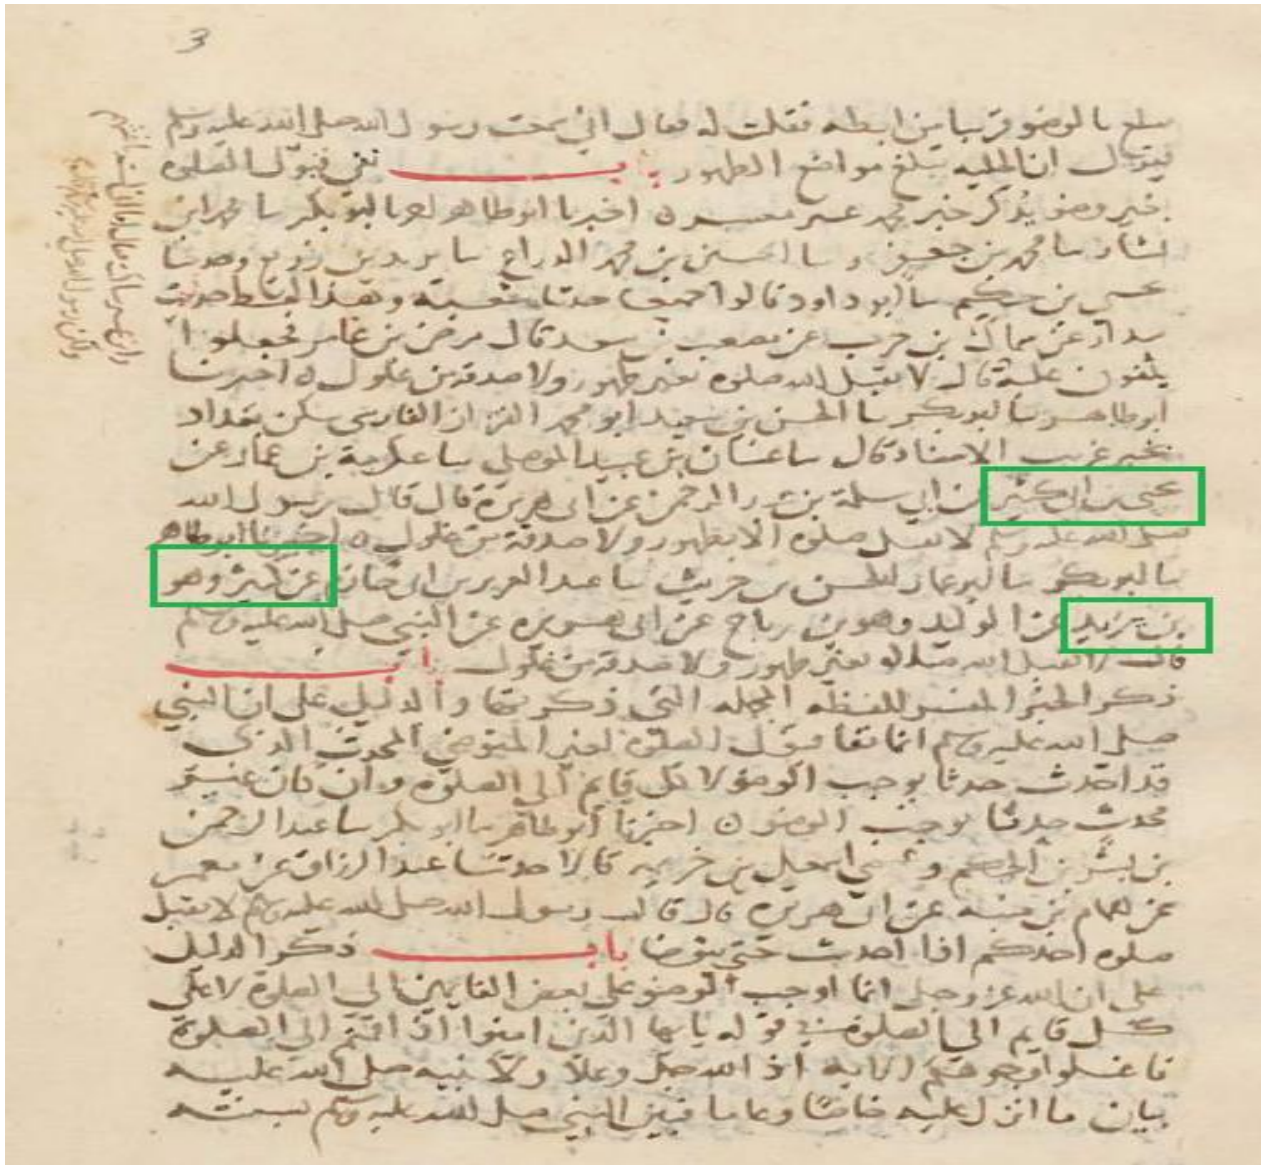 3
يبلغ بالوضو قريبا من ابطه فقلت له فقال اني سمعت رسول الله صلى الله عليه وسلم
يقول ان الحليه تبلغ مواضع الطهور باب نفي قبول الصلوه
بغير وضو بذكر خبر مجمل غير مفسر ه اخبرنا ابو طاهر نا ابو بكر نا محمد بن
بشار نا محمد بن جعفر و نا الحسين بن محمد الذراع نا يزيد بن زريع وحدثنا
يحيى بن حكيم نا ابو داود قالوا حدثنا شعبة وهذا لفظ حديث
بندار عن سماك بن حرب عن مصعب بن سعد قال مرض بن عامر فجعلوا
يثنون عليه قال لا يقبل الله صلوة بغير طهور ولا صدقة من غلول ه اخبرنا
ابو طاهر نا ابو بكر نا الحسن بن سعيد ابو محمد القزاز الفارسي سكن بغداد
بخبر غريب الاسناد قال نا غسان بن عبيد الموصلي نا عكرمة بن عمار عن
يحيى بن ابي كثير عن ابي سلمة بن عبد الرحمن عن ابي هريرة قال قال رسول الله
صلى الله عليه وسلم لا تقبل صلوة الا بطهور ولا صدقة من غلول ه اخبرنا ابو طاهر
نا ابو بكر نا ابو عمار الحسين بن حريث نا عبد العزيز بن ابي حازم عن كثير وهو
بن يزيد عن الوليد وهو بن رباح عن ابي هريره عن النبي صلى الله عليه وسلم
قال لا تقبل الله صلوة بغير طهور ولا صدقة من غلول باب
ذكر الخبر المفسر للفظه المجمله التي ذكرتها والدليل على ان النبي
صلى الله عليه وسلم انما نفا قبول الصلوة لغير المتوضي المحدث الذي
قد احدث حدثا يوجب الوضو لا كل قايم الى الصلوة وان كان غير
محدث حدثا يوجب الوضو ه اخبرنا ابو طاهر نا ابو بكر نا عبد الرحمن
بن بشر بن الحكم وعمي اسمعيل بن خزيمه قالا حدثنا عبد الرزاق عن معمر
عن همام بن منبه عن ابي هريره قال قال رسول الله صلى الله عليه وسلم لا يقبل
صلوه احدكم اذا احدث حتى يتوضا باب ذكر الدليل
على ان الله عز وجل انما اوجب الوضو على بعض القايمين الى الصلوة لا على
كل قايم الى الصلوة في قوله يا يها الذين امنوا اذا قمتم الى الصلوة
فاغسلوا وجوهكم الايه اذ الله جل وعلا ولا نبيه صلى الله عليه
بيان ما انزل عليه خاصا وعاما فبين النبي صلى الله عليه وسلم بسنته